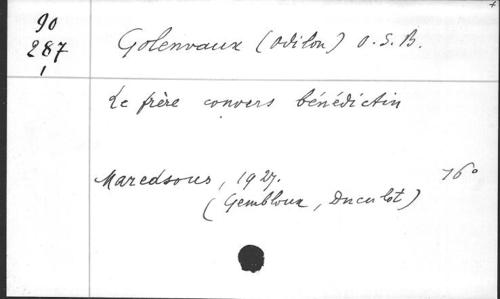 90
287
1
Golenvaux (Odilon) O.S.B.
Le frère convers bénédictin
Maredsous, 1927. 16°
(Gembloux, Duculot)